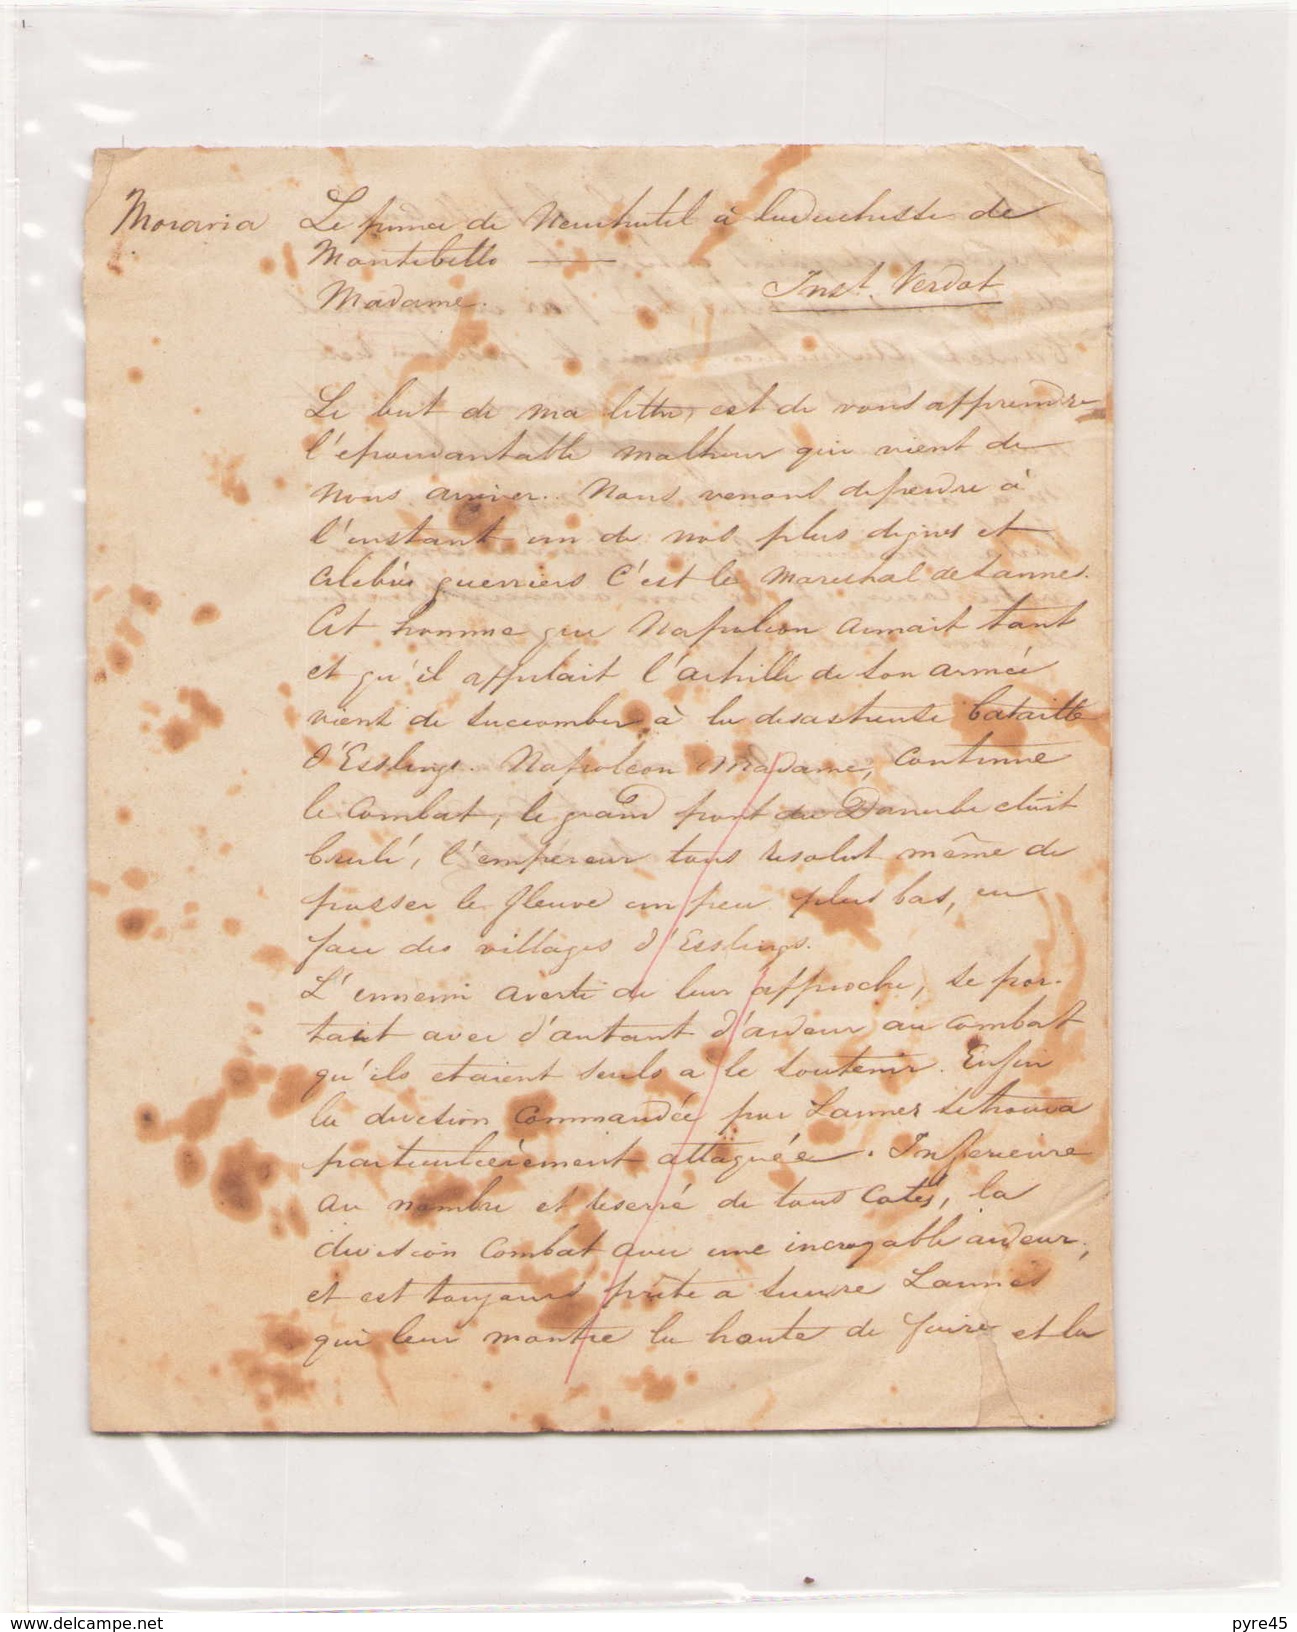 Moraria Le prince de Neuchatel à la duchesse de
Montebello —
Madame. Inst. Verdot
Le but de ma lettre, est de vous apprendre
l'epouvantable malheur qui vient de
nous arriver. Nous venons de perdre à
l'instant un de nos plus dignes et
celebres guerriers C'est le marechal de Lannes.
Cet homme que Napoleon aimait tant
et qu'il appelait l'achille de son armée
vient de succomber à la desastreuse bataille
d'Esslings. Napoleon Madame, continue
le combat, le grand pont du Danube etait
brulé, l'empereur tous resolut même de
passer le fleuve un peu plus bas, en
face des villages d'Esslings.
L'ennemi averti de leur approche, se por-
tait avec d'autant d'ardeur au combat
qu'ils etaient seuls a le soutenir. Enfin
la division commandée par Lannes se trouva
particulierement attaquée. Inferieure
au nombre et reserré de tous cotés, la
division combat avec une incroyable ardeur,
et est toujours prête a suivre Lannes
qui leur montre la honte de fuire et la
pyre45